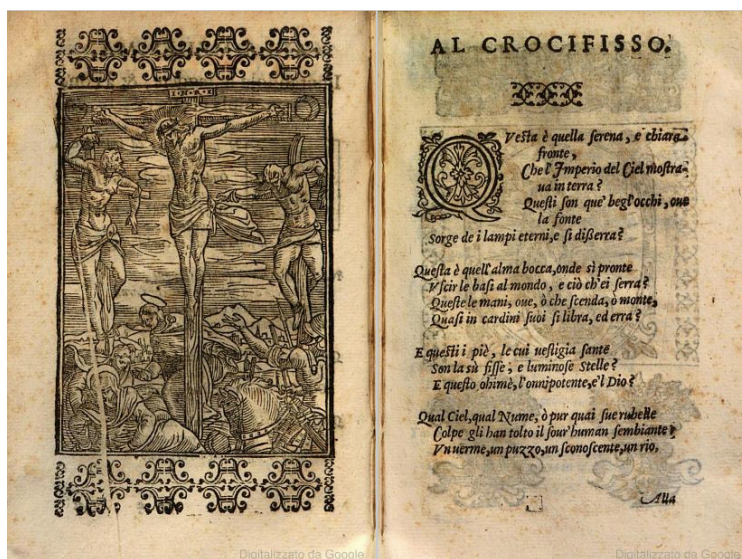 AL CROCIFISSO.
QVesta è quella serena, e chiara
fronte,
Che l'Imperio del Ciel mostra-
ua in terra?
Questi son que' begl'occhi, oue
la fonte
Sorge de i lampi eterni, e si disserra?
Questa è quell'alma bocca, onde sì pronte
Vscir le basi al mondo, e ciò ch'ei serra?
Queste le mani, oue, ò che scenda, ò monte,
Quasi in cardini suoi si libra, ed erra?
E questi i piè, le cui uestigia sante
Son la sù fisse, e luminose Stelle?
E questo ohimè, l'onnipotente, e'l Dio?
Qual Ciel, qual Nume, ò pur quai sue rubelle
Colpe gli han tolto il sour'human sembiante?
Vn uerme, un puzzo, un sconoscente, un rio,
Alla
Digitalizzato da Google
Digitalizzato da Google